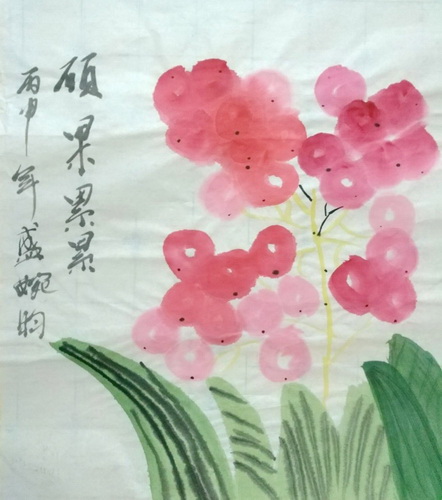 硕果累累
丙申年盛婉昀